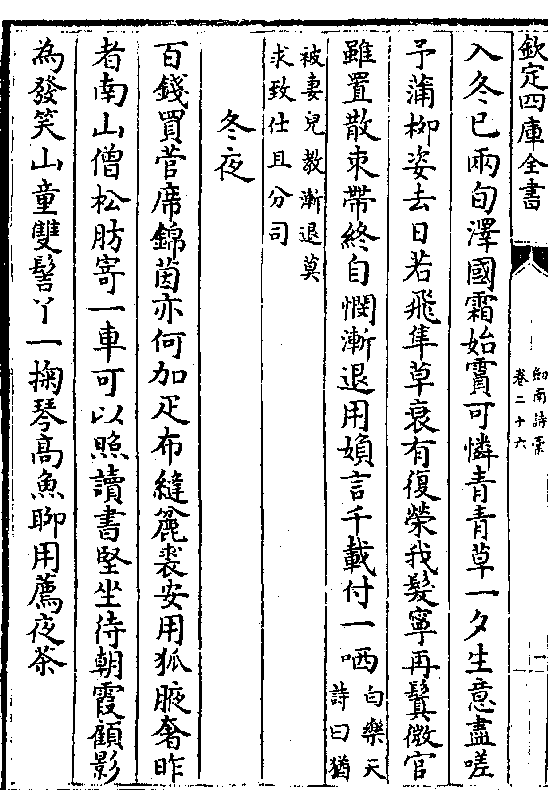 欽定四庫全書
劍南詩稾
卷二十六
入冬已兩旬澤國霜始霣可憐青青草一夕生意盡嗟
予蒲柳姿去日若飛隼草衰有復榮我髮寧再鬒微官
雖置散束帶終自憫漸退用媍言千載付一哂白樂天詩曰猶
被妻兒教漸退莫求致仕且分司
冬夜
百錢買菅席錦茵亦何加疋布縫麄裘安用狐腋奢昨
者南山僧松肪寄一車可以照讀書堅坐待朝霞顧影
為發笑山童雙髻丫一掬琴高魚聊用薦夜茶